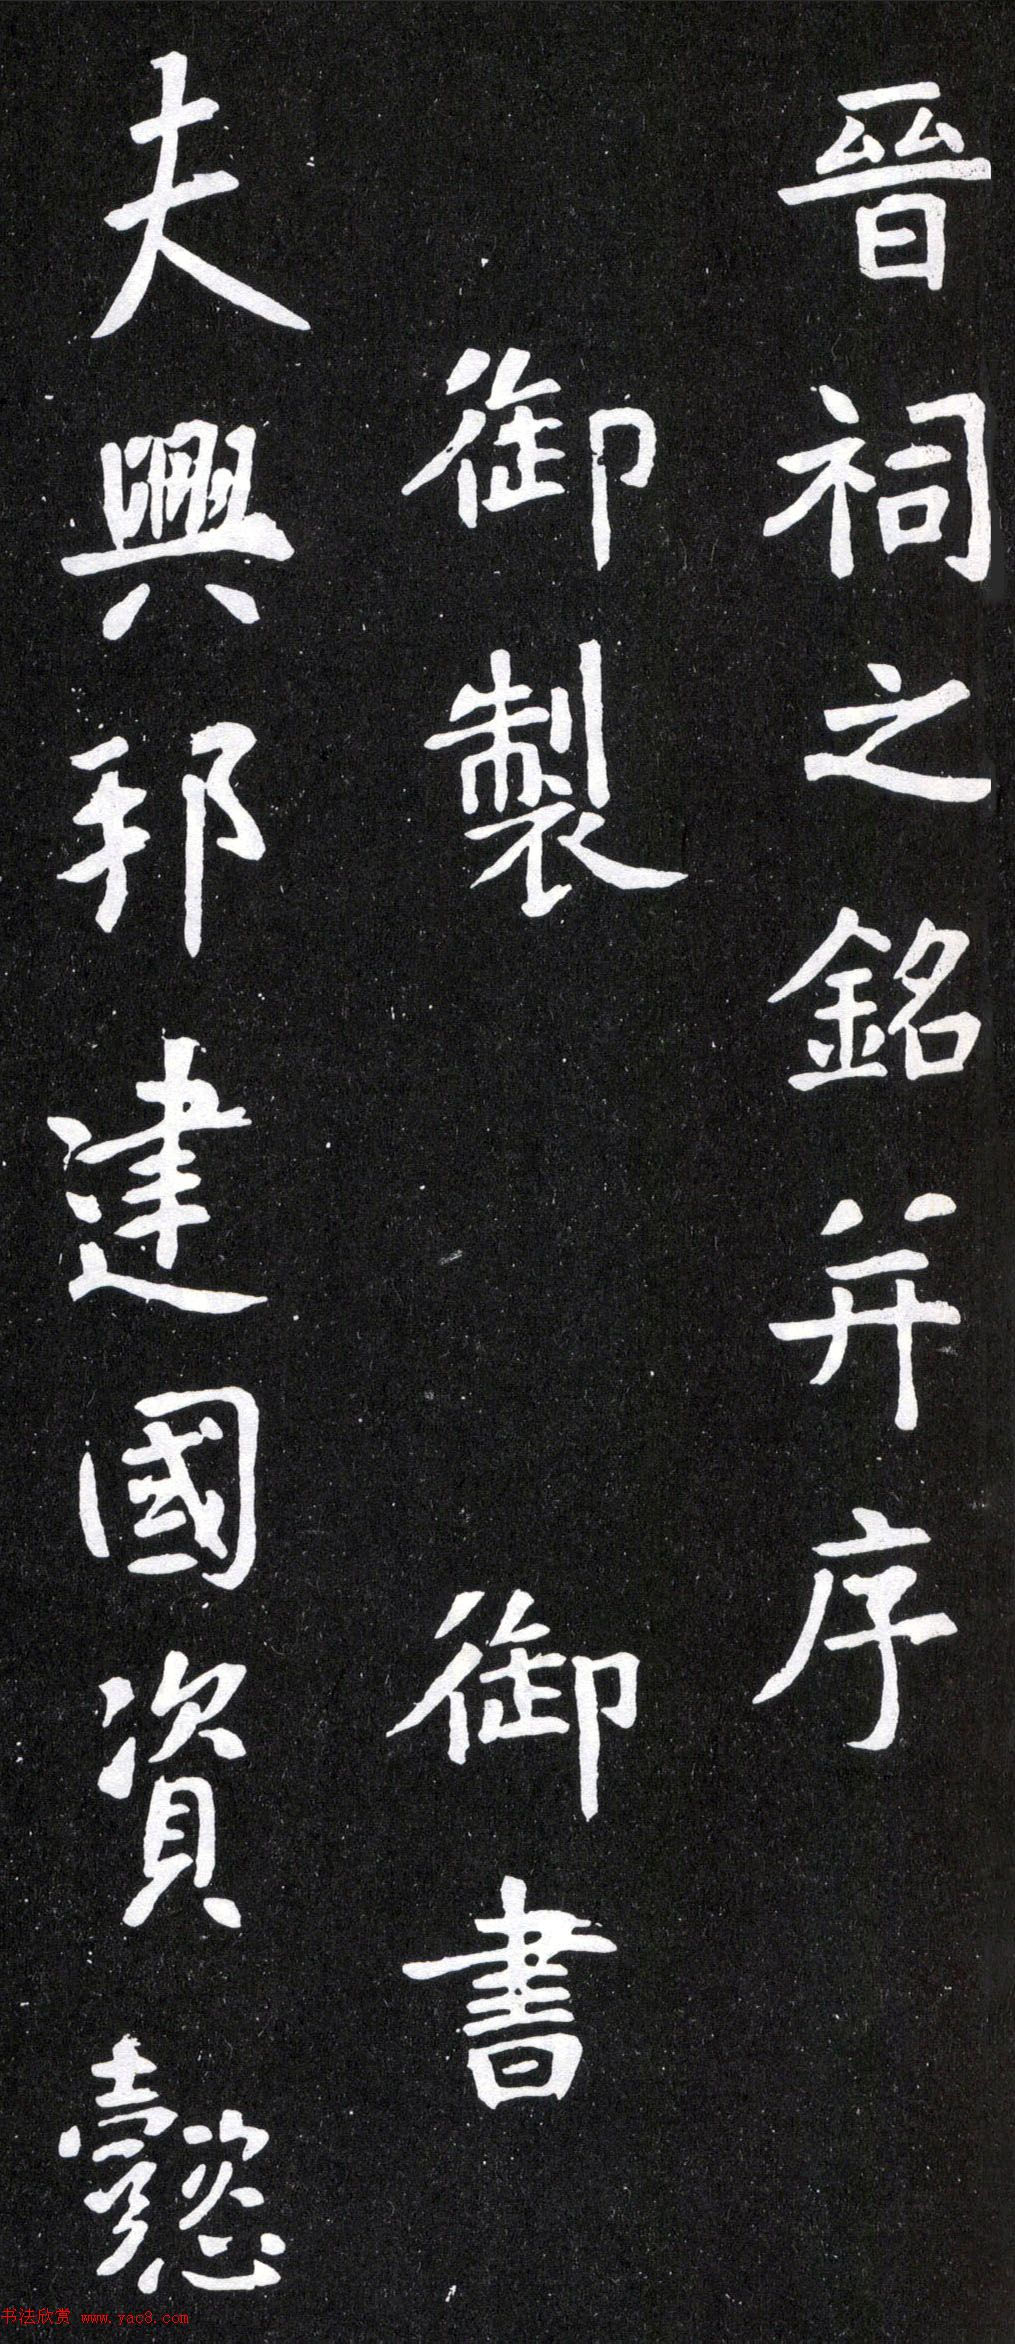 晉祠之銘并序
御製 御書
夫興邦建國資懿
书法欣赏 www.yac8.com